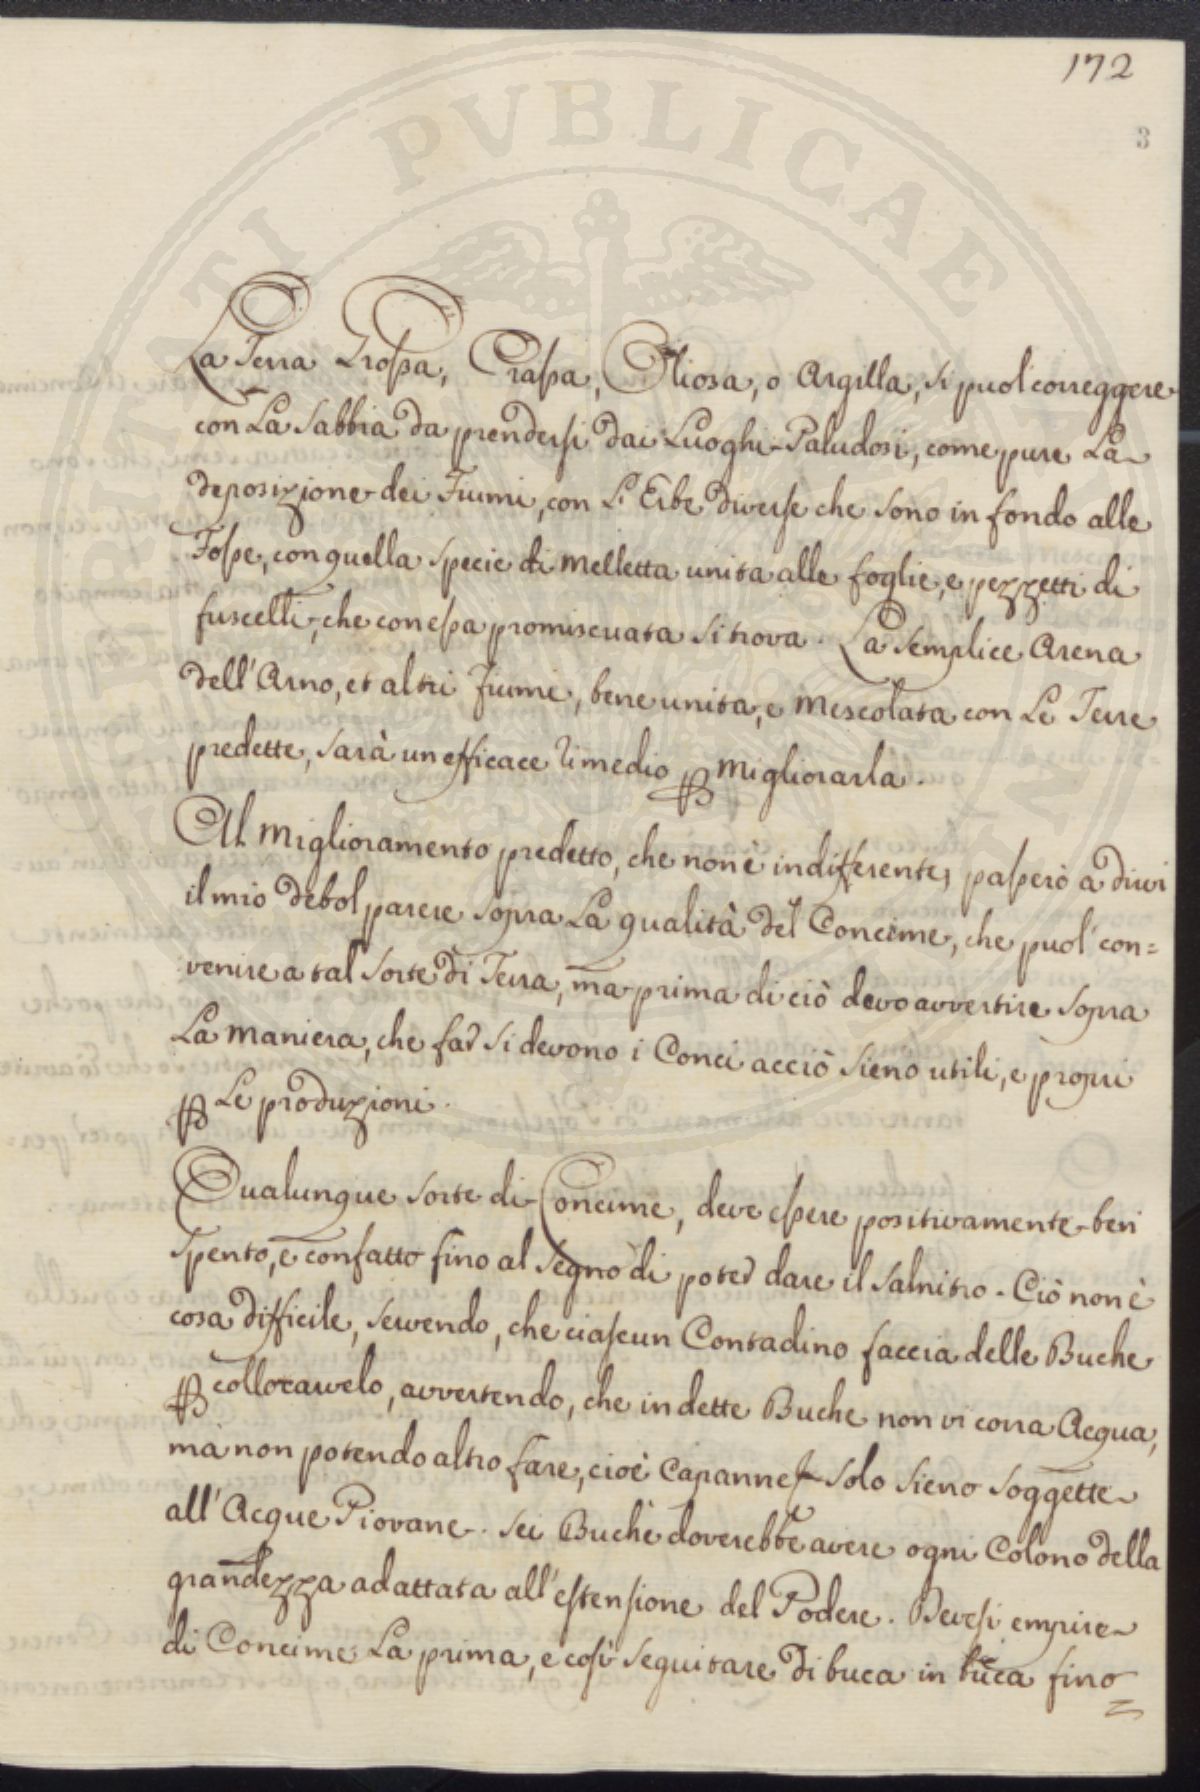 172
3
PVBLICAE
La Terra Grossa, Crassa, Oliosa, o Argilla, si puol correggere
con La Sabbia da prendersi dai Luoghi Paludosi, come pure La
deposizione dei Fiumi, con L'Erbe diverse che sono in fondo alle
Fosse, con quella specie di Melletta unita alle foglie, e pezzetti di
fuscelli, che con essa promiscuata si trova. La semplice Arena
dell'Arno, et altri Fiumi, bene unita, e mescolata con Le Terre
predette, sarà un efficace rimedio p migliorarla.
Al miglioramento predetto, che non è indifferente, passerò a dirvi
il mio debol parere sopra La qualità del Concime, che puol con=
venire a tal sorte di Terra, ma prima di ciò devo avvertire sopra
La maniera, che far si devono i Conci acciò sieno utili, e propri
p Le produzioni.
Qualunque sorte di Concime, deve essere positivamente ben
spento, e confatto fino al segno di poter dare il salnitro. Ciò non è
cosa difficile, servendo, che ciascun Contadino faccia delle Buche
p collocarvelo, avvertendo, che in dette Buche non vi corra Acqua,
ma non potendo altro fare, cioè Capanne solo sieno soggette
all'Acque Piovane. Sei Buche doverebbe avere ogni Colono della
grandezza adattata all'estensione del Podere. Devesi empire
di Concime La prima, e così seguitare di buca in buca fino